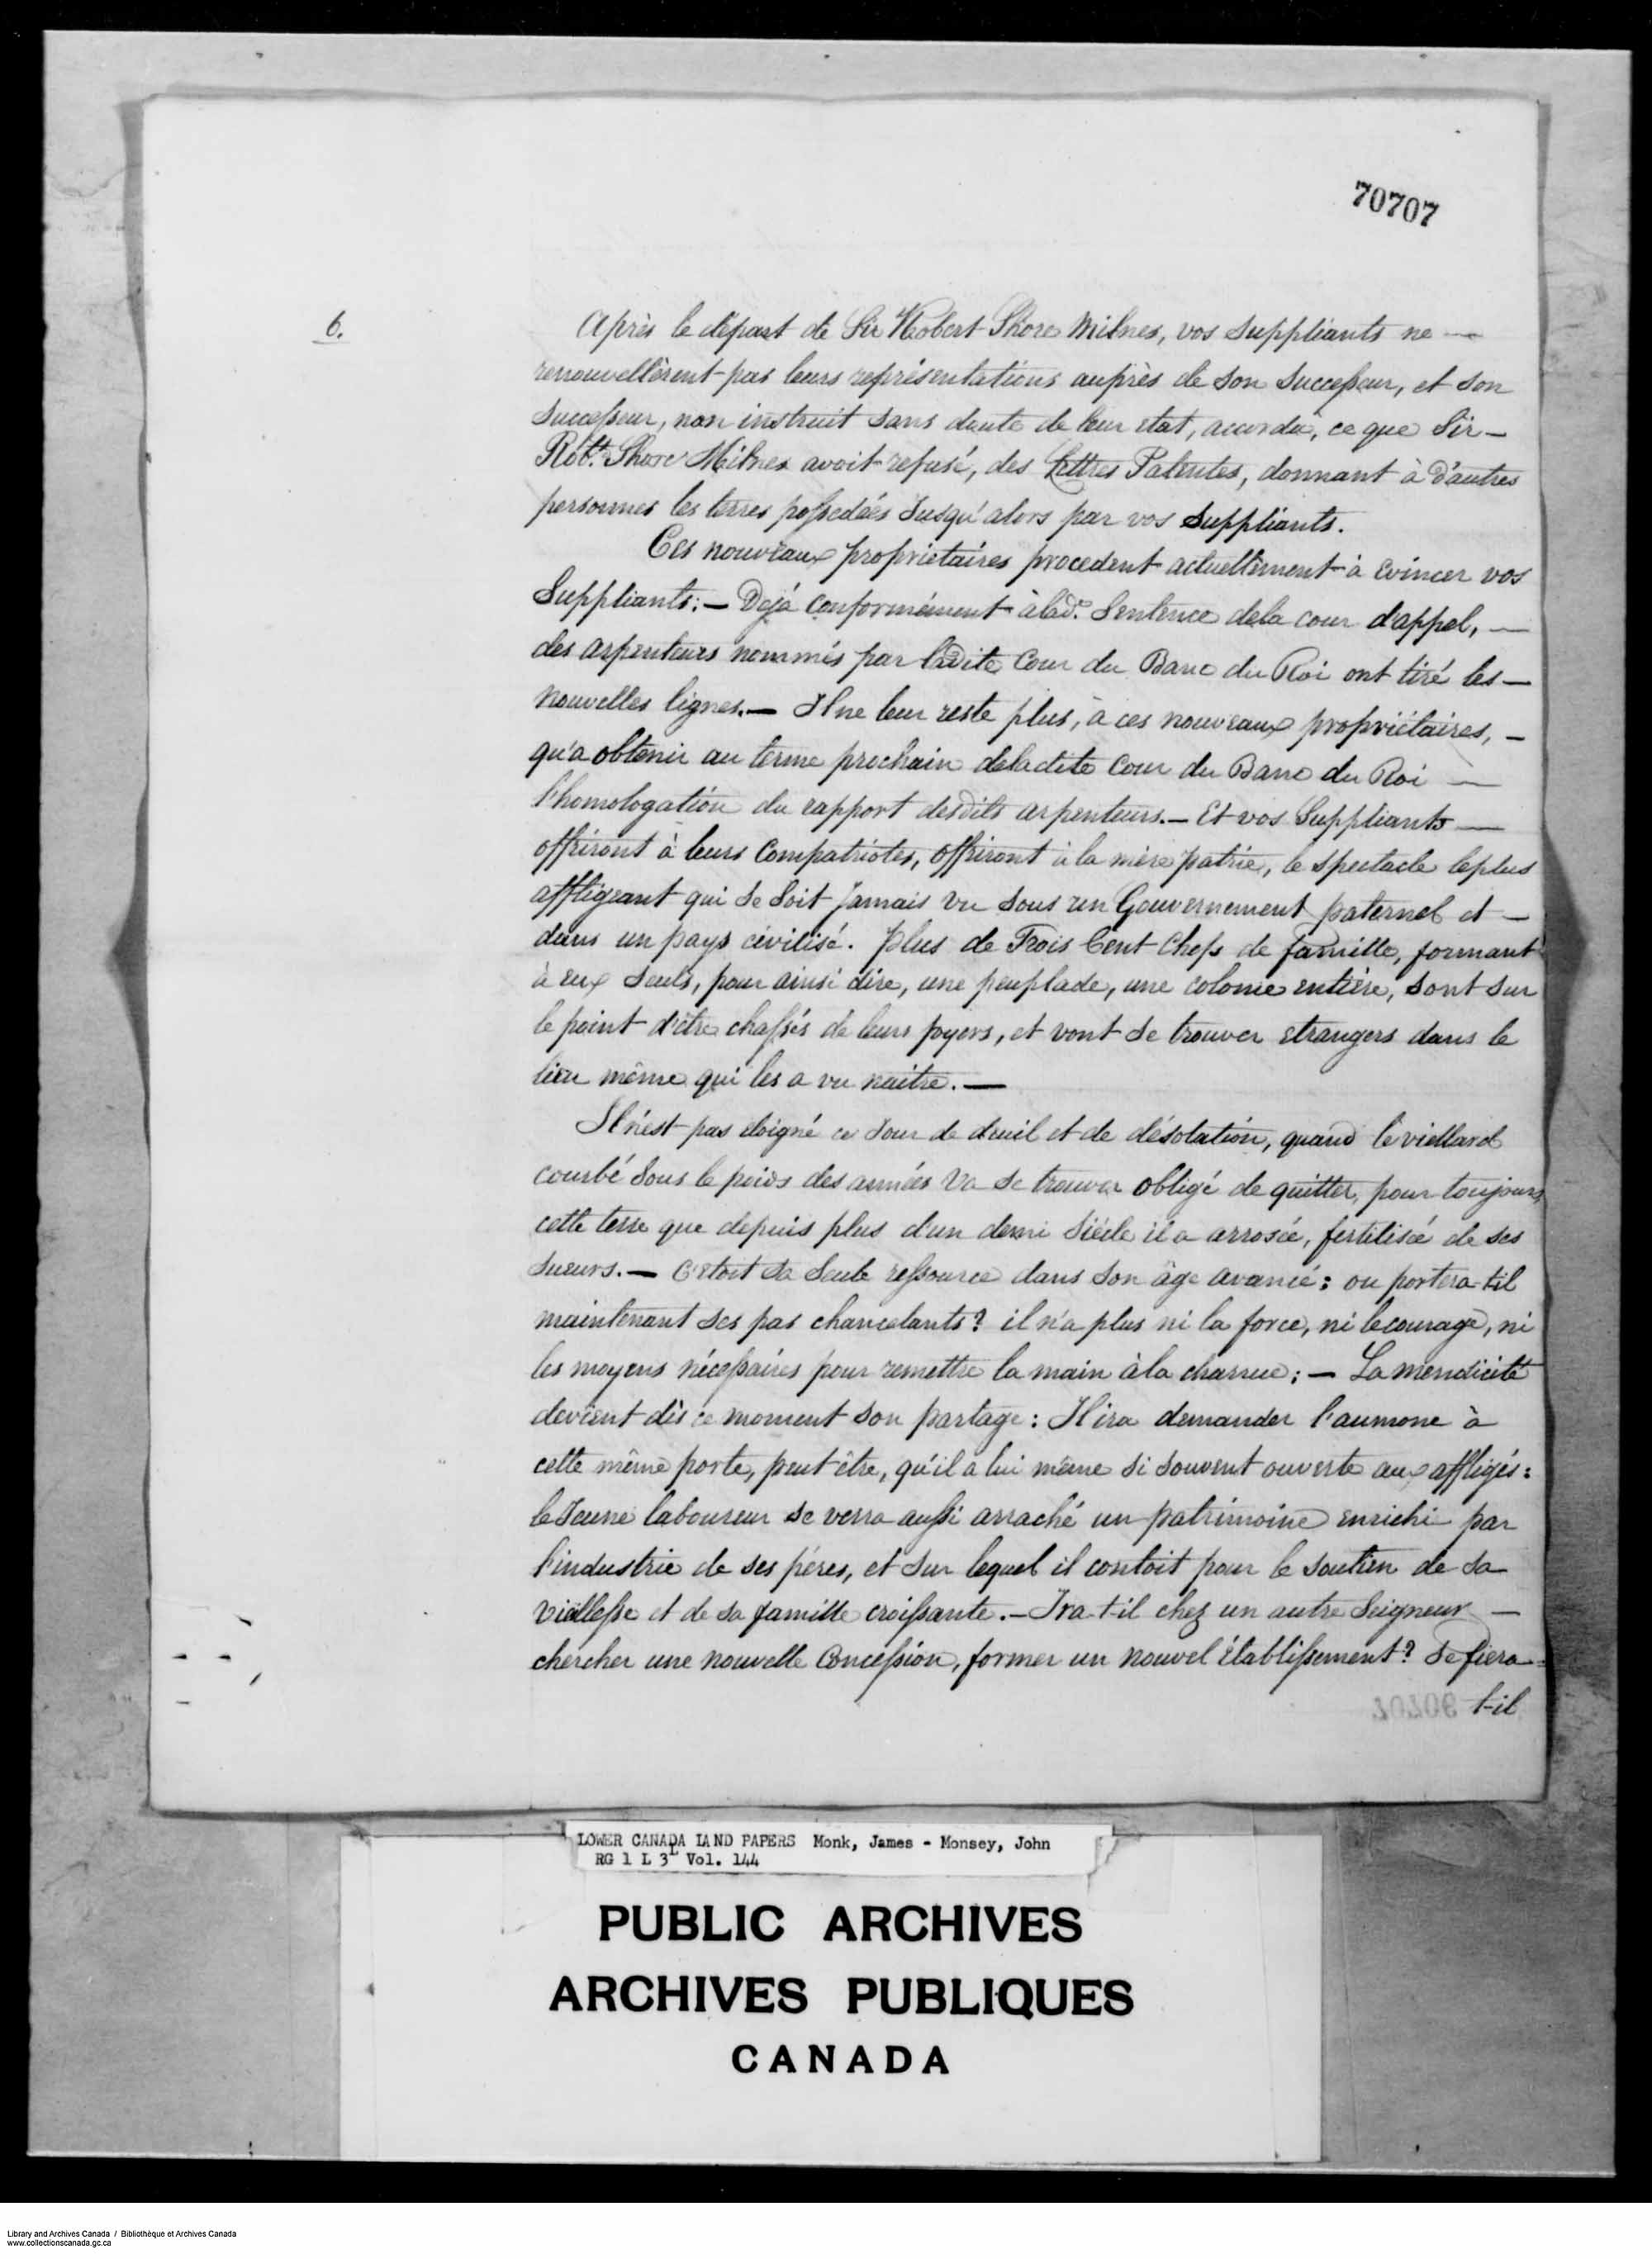 70707
6.
Après le départ de Sir Robert Shore Milnes, vos suppliants ne —
renouvellèrent pas leurs représentations auprès de son successeur, et son
successeur, non instruit sans doute de leur etat, accorda, ce que Sir —
Robt. Shore Milnes avoit refusé, des Lettres Patentes, donnant à d'autres
personnes les terres possedées Jusqu'alors par vos Suppliants.
Ces nouveaux propriétaires procedent actuellement à evincer vos
Suppliants: — Dejà conformément à lad. Sentence dela cour d'appel, —
des arpenteurs nommés par ladite Cour du Banc du Roi ont tiré les —
nouvelles lignes. — Il ne leur reste plus, à ces nouveaux propriétaires, —
qu'a obtenir au terme prochain deladite Cour du Banc du Roi —
l'homologation du rapport desdits arpenteurs. — Et vos Suppliants —
offriront à leurs Compatriotes, offriront à la mère patrie, le spectacle leplus
affligeant qui se soit Jamais vu sous un Gouvernement paternel et —
dans un pays civilisé. plus de Trois Cent Chefs de famille, formant
à eux seuls, pour ainsi dire, une peuplade, une colonie entière, sont sur
le point d'être chassés de leurs foyers, et vont se trouver etrangers dans le
lieu même qui les a vu naitre. —
Il n'est pas éloigné ce Jour de deuil et de désolation, quand le viellard
courbé sous le poids des années va se trouver obligé de quitter, pour toujours,
cette terre que depuis plus d'un demi siécle il a arrosée, fertilisée de ses
sueurs. — C'etoit sa seule ressource dans son âge avancé: ou portera-t-il
maintenant ses pas chancelants? il n'a plus ni la force, ni lecourage, ni
les moyens nécessaires pour remettre la main à la charrue; — La mendicité
devient dès ce moment son partage: Il ira demander l'aumone à
cette même porte, peut être, qu'il a lui même si souvent ouverte aux affligés:
le Jeune laboureur se verra aussi arraché un patrimoine enrichi par
l'industrie de ses péres, et sur lequel il contoit pour le soutien de sa
viellesse et de sa famille croissante. — Ira-t-il chez un autre Seigneur —
chercher une nouvelle Concession, former un nouvel établissement? Se fiera-
t-il
LOWER CANADA LAND PAPERS Monk, James - Monsey, John
RG 1 L 3L Vol. 144
PUBLIC ARCHIVES
ARCHIVES PUBLIQUES
CANADA
Library and Archives Canada / Bibliothèque et Archives Canada
www.collectionscanada.gc.ca